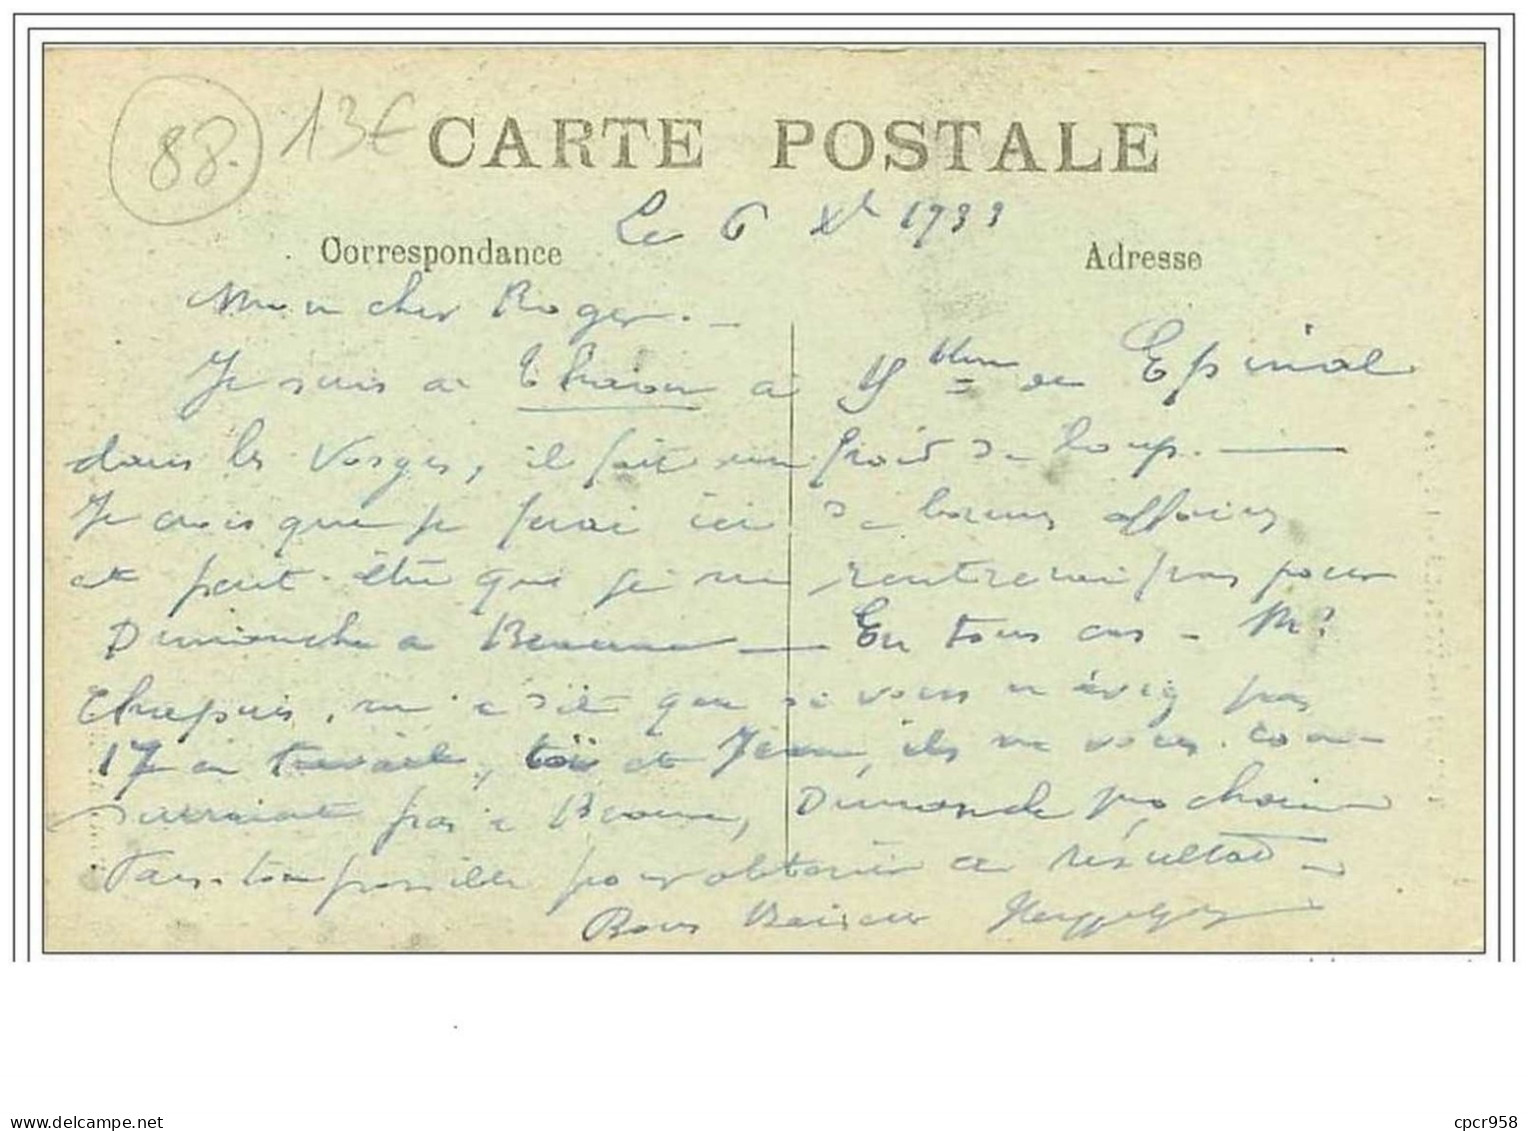 88.
13€
CARTE POSTALE
Le 6 Xbre 1933
Correspondance
Adresse
Mon cher Roger. —
Je suis à Thaon à 9 Km de Epinal
dans les Vosges, il fait un froid de loup. —
Je crois que je ferai ici de bonnes affaires
et peut-être que je ne rentrerai pas pour
Dimanche à Beaune — En tous cas - Mr
Chapuis, m'a dit que si vous n'aviez pas
17 en travail, toi et Jean, ils ne vous con-
duiraient pas à Beaune, Dimanche prochain
Fais ton possible pour obtenir ce résultat —
Bons Baisers
cpcr958